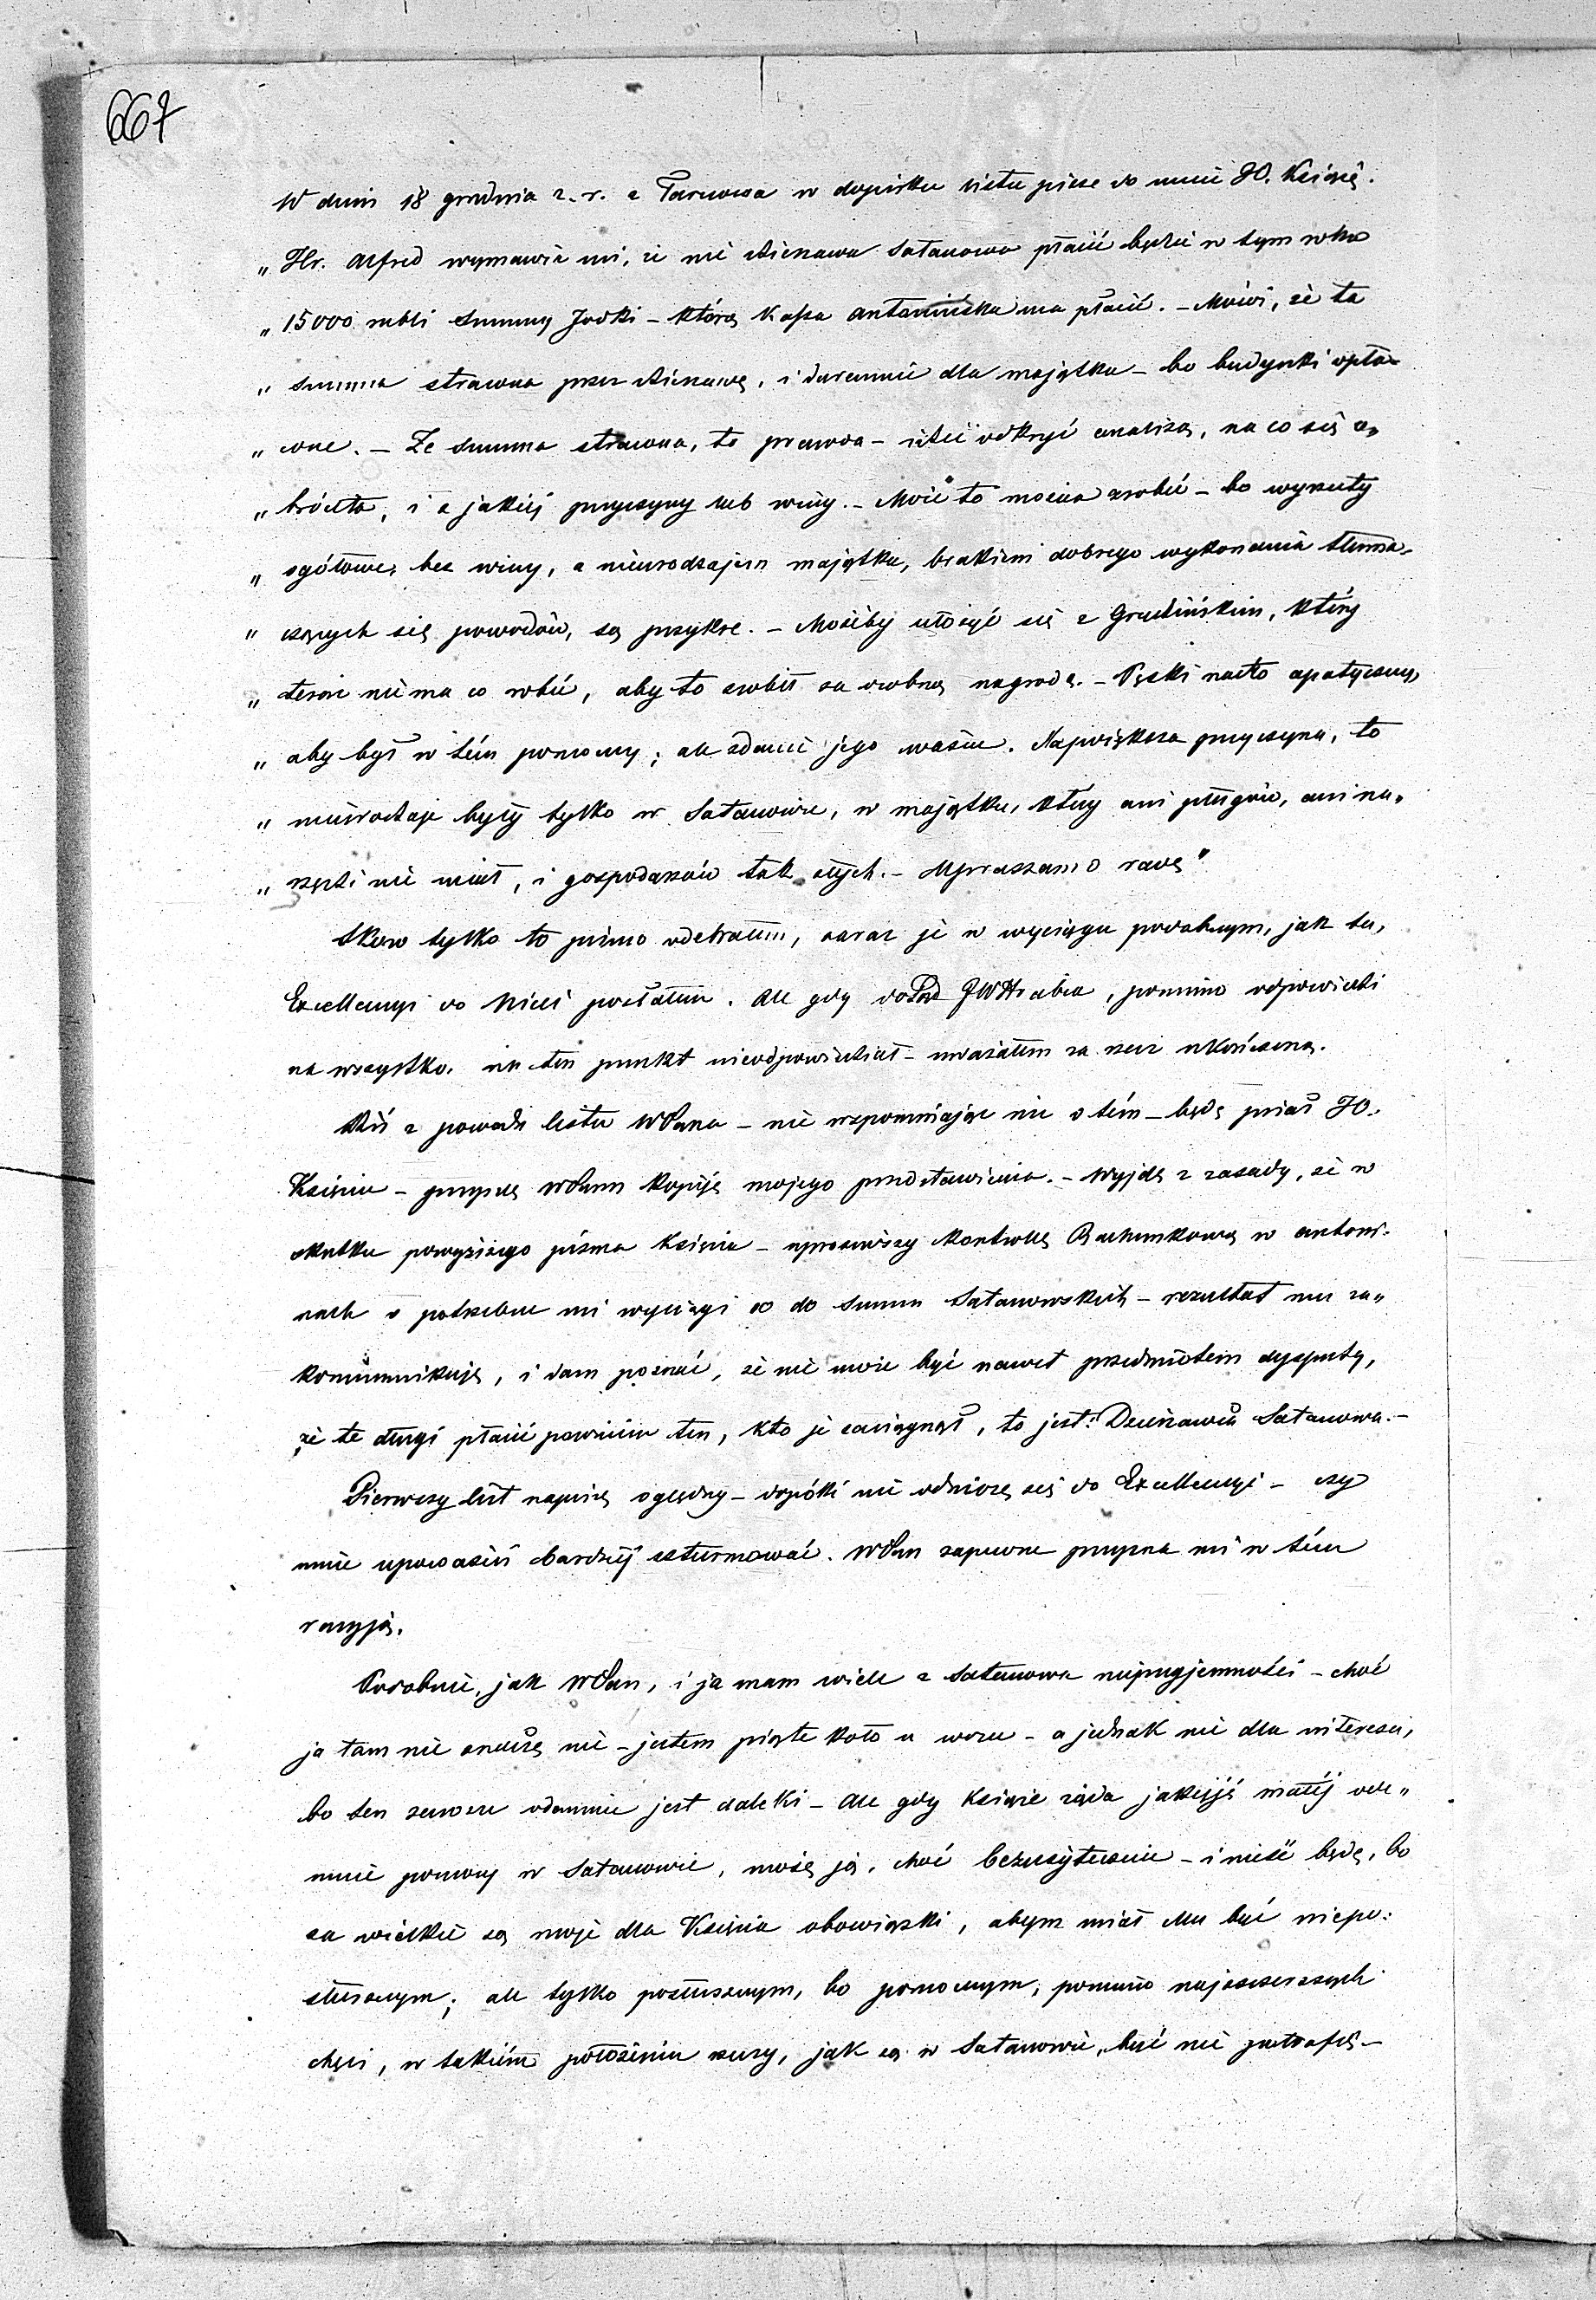 667
W dniu 18 grudnia z. r. z Tarnowa w dopisku listu pisze do mnie JO. Książę.
„ Hr. Alfred wymawia mi, że nie dzierżawa Satanowa płacić będzie w tym roku
„ 15000 rubli summy Jodki – którą Kassa Antonińska ma płacić. – Mówi, że ta
„ summa strawna przez dzierżawę, i daremnie dla majątku – bo budynki opła-
„ cone. – Że summa strawna, to prawda – idzie odkryć analizą, na co się o„
„ bróciła, i z jakiéj przyczyny lub winy. – Może to można zrobić – bo wyrzuty
„ ogółowe, bez winy, z nieurodzajem majątku, brakiem dobrego wykonania tłuma-
„ czących się powodów, są przykre. – Możeby ułożyć się z Grudzińskim, który
„ teraz niema co robić, aby to zrobił za osobną nagrodą. – Pęski nadto apatyczny,
„ aby był w tém pomocny; ale zdanie jego ważne. Największa przyczyna, to
„ nieurodzaje były tylko w Satanowie, w majątku, który ani pługów, ani na„
„ rzędzi nie miał, i gospodarzów tak złych. – Upraszam o radę"
Skoro tylko to pismo odebrałem, zaraz je w wyciągu podobnym, jak tu,
Excellencyi do Nicei posłałem. Ale gdy dotąd JWHrabia, pomimo odpowiedzi
na wszystko, na ten punkt nieodpowiedział – uważałem za rzecz ukończoną.
Dziś z powodu listu WPana – nie wspominając nic o tém – będę pisał JO.
Księciu – przyszlę WPanu kopiję mojego przedstawienia. – Wyjdę z zasady, że w
skutku powyższego pisma Księcia – uprosiwszy Kontrollę Rachunkową w Antoni-
nach o potrzebne mi wyciągi co do summ Satanowskich – rezultat mu za„
kommunikuję, i dam poznać, że nie może być nawet przedmiotem dysputy,
że te długi płacić powinien ten, kto je zaciągnął, to jest: Dzierżawca Satanowa. –
Pierwszy list napiszę oględny – dopóki nie odniosę się do Excellencyi – czy
mnie upoważni bardziéj szturmować. WPan zapewne przyzna mi w tém
racyją.
Podobnie, jak WPan, i ja mam wiele z Satanowa nieprzyjemności – choć
ja tam nie znaczę nic – jestem piąte koło u wozu – a jednak nie dla interesu,
bo ten zawsze odemnie jest daleki – Ale gdy Książe żąda jakiéjś małéj ode„
mnie pomocy w Satanowie, niosę ją, choć bezużytecznie – i nieść będę, bo
za wielkie są moje dla Księcia obowiązki, abym miał Mu być niepo-
słusznym; ale tylko posłusznym, bo pomocnym, pomimo najszczerszych
chęci, w takiém położeniu rzeczy, jak są w Satanowie, być nie potrafię –